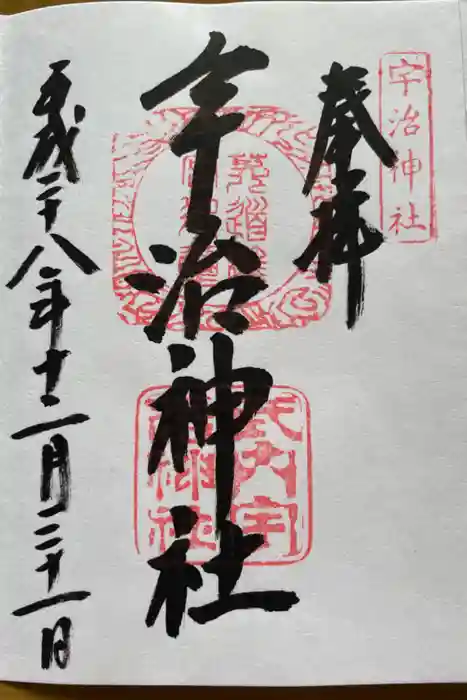 宇治神社
奉拝
宇治神社
式内宇
治神社
平成二十八年十二月二十一日